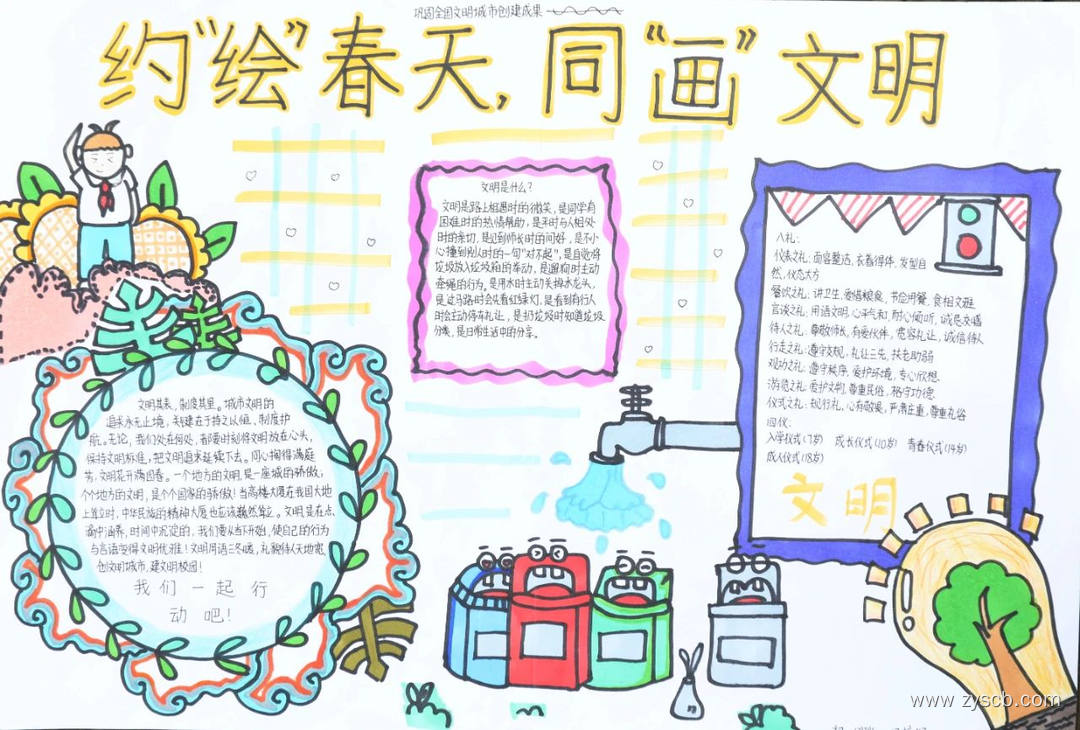 巩固全国文明城市创建成果
约“绘”春天,同“画”文明
文明是什么?
文明是路上相遇时的微笑,是同学有
困难时的热情帮助,是平时与人相处
时的亲切,是见到师长时的问好,是不小
心撞到别人时的一句“对不起”,是自觉将
垃圾放入垃圾箱的举动,是遛狗时主动
牵绳的行为,是用水时主动关掉水龙头,
是过马路时会先看红绿灯,是看到有行人
时会主动停车礼让,是扔垃圾时知道垃圾
分类,是日常生活中的分享。
八礼:
仪表之礼:面容整洁,衣着得体,发型自
然,仪态大方
餐饮之礼:讲卫生,爱惜粮食,节俭用餐,食相文雅
言谈之礼:用语文明,心平气和,耐心倾听,诚恳交谈
待人之礼:尊敬师长,友爱伙伴,宽容礼让,诚信待人
行走之礼:遵守交规,礼让三先,扶老助弱
观功之礼:遵守秩序,爱护环境,专心欣想.
游览之礼:爱护文物,尊重民俗,恪守功德
仪式之礼:规行礼,心有敬畏,严肃庄重,尊重礼俗
四仪:
入学仪式(7岁) 成长仪式(10岁) 青春仪式(14岁)
成人仪式(18岁)
文明
文明其表,制度其里。城市文明的
追求永无止境,关键在于持之以恒、制度护
航。无论,我们处在何处,都要时刻将文明放在心头,
保持文明标准,把文明追求延续下去。同心掬得满庭
芳,文明花开满园春。一个地方的文明,是一座城的骄傲;
个个地方的文明,是个个国家的骄傲!当高楼大厦在我国大地
上耸立时,中华民族的精神大厦也应该巍然耸立。文明,是在点
滴中涵养,时间中沉淀的,我们要从当下开始,使自己的行为
与言语变得文明优雅!文明用语三冬暖,礼貌待人天地宽
创文明城市,建文明校园!
我们一起行
动吧!
www.zyscb.com